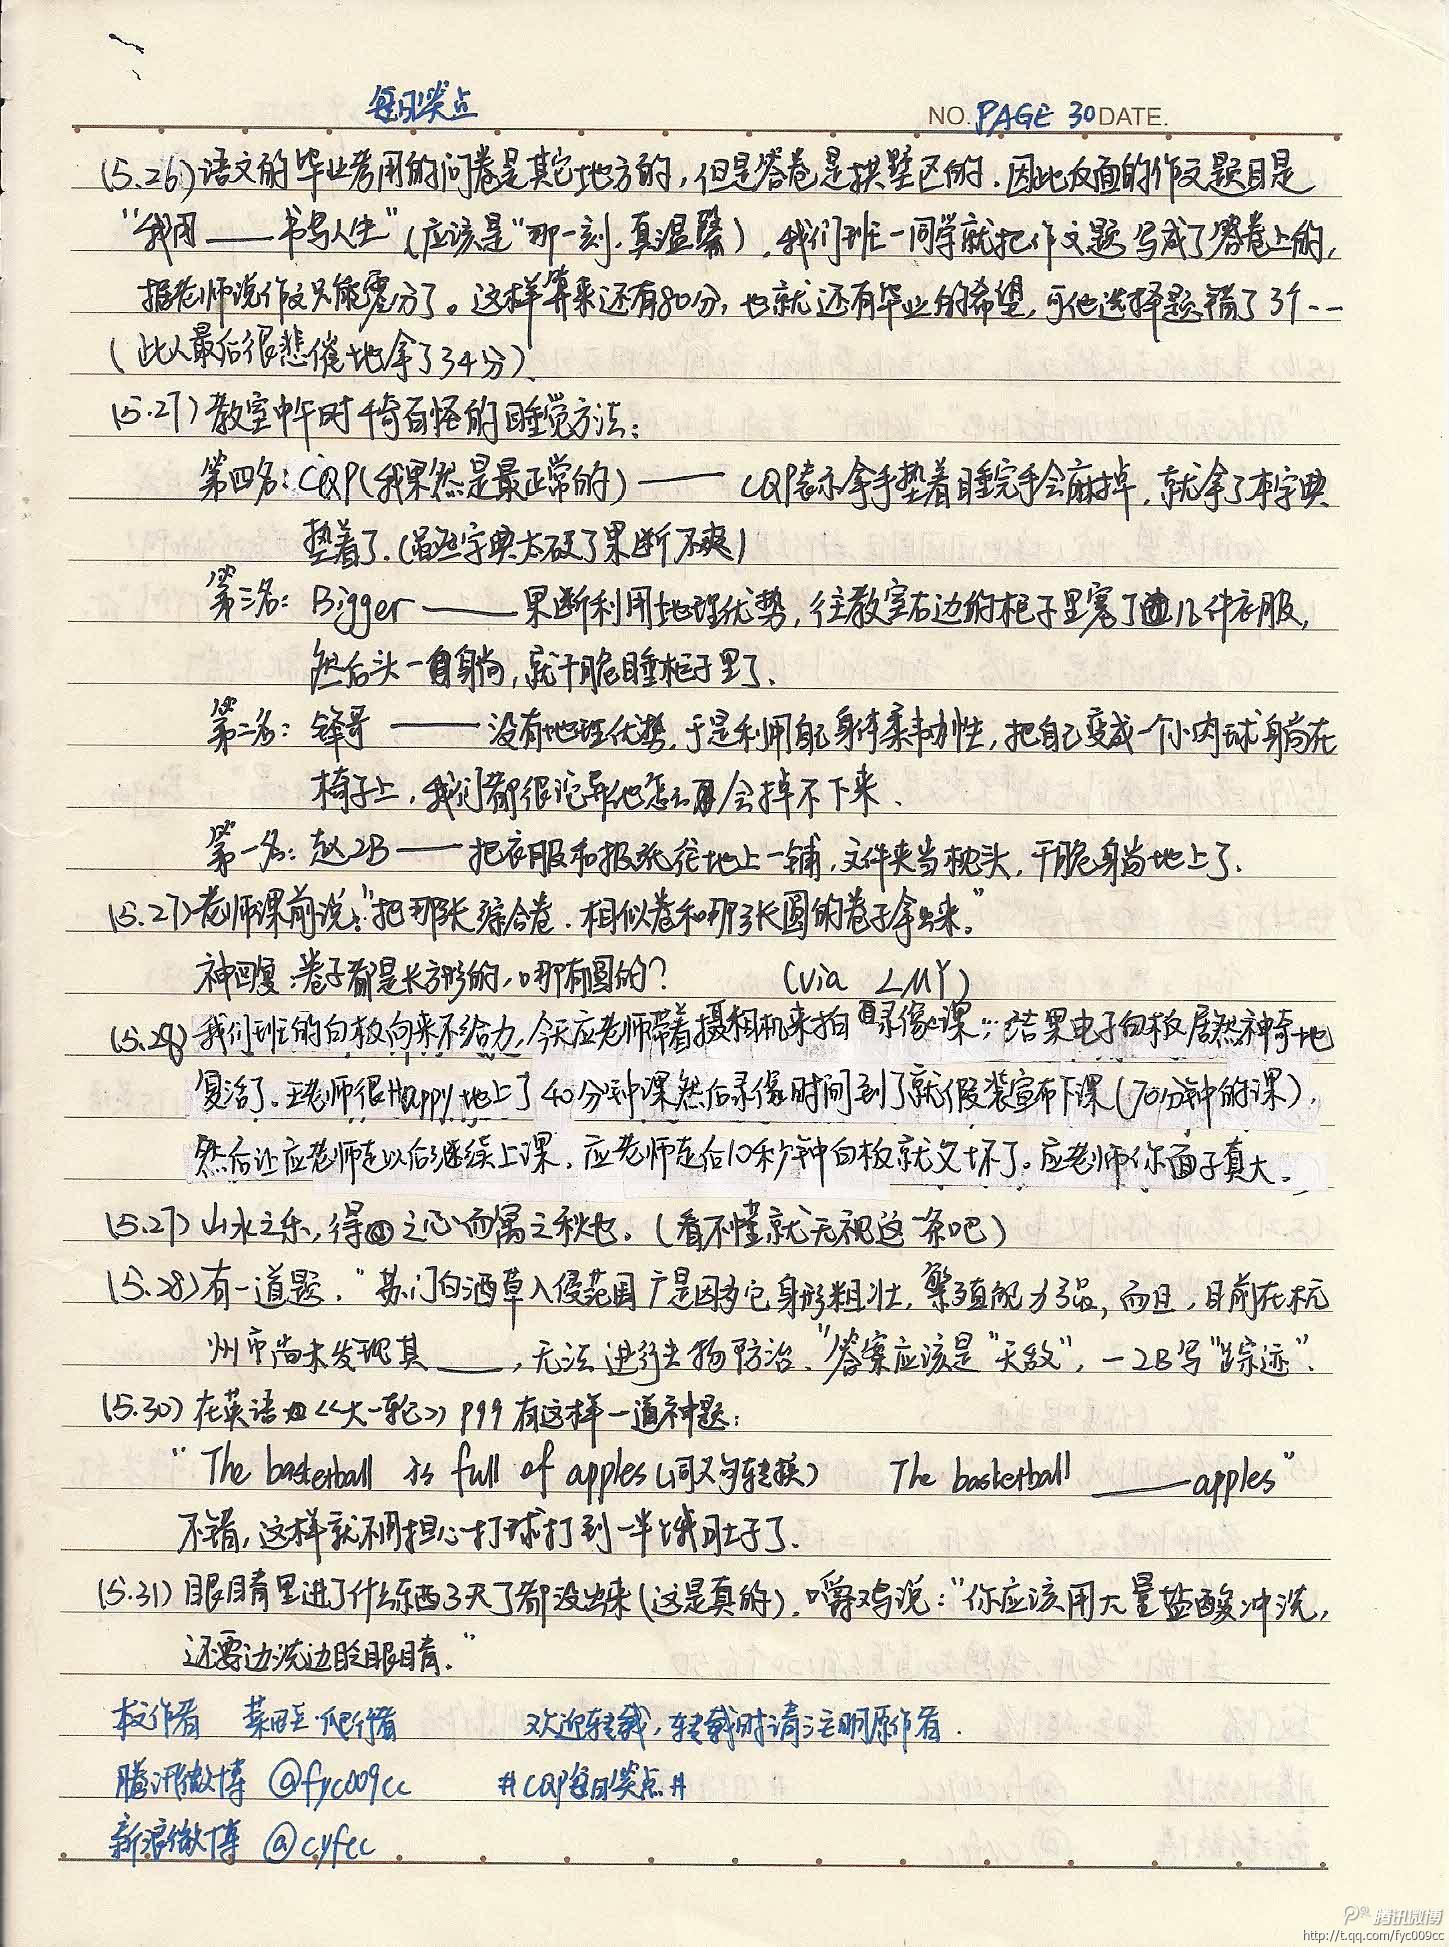 每日笑点
NO. PAGE 30 DATE.
(5.26)语文的毕业考用的问卷是其它地方的,但是答卷是拱墅区的.因此反面的作文题目是
"我用____书写人生"(应该是"那一刻,真温馨).我们班一同学就把作文题写成了答卷上的,
据老师说作文只能零分了。这样算来还有80分,也就还有毕业的希望,可他选择题错了3个...
(此人最后很悲催地拿了34分).
(5.27)教室中午时千奇百怪的睡觉方法:
第四名:CQP(我果然是最正常的)——CQP表示拿手垫着睡完手会麻掉,就拿了本字典
垫着了.(虽然字典太硬了果断不爽)
第三名:Bigger——果断利用地理优势,往教室右边的柜子里塞了几件衣服,
然后头一躺,就干脆睡柜子里了.
第二名:锋哥——没有地理优势,于是利用自己身体柔韧性,把自己变成一个小肉球躺在
椅子上,我们都很诧异他怎么会掉不下来.
第一名:赵2B——把衣服和报纸往地上一铺,文件夹当枕头,干脆躺地上了.
(5.27)老师课前说:"把那张综合卷.相似卷和那张圆的卷子拿出来."
神回复:卷子都是长方形的,哪有圆的? (via LMY)
(5.28)我们班的白板向来不给力,今天应老师带着摄相机来拍录像课,结果电子白板居然神奇地
复活了.王老师很Happy地上了40分钟课然后录像时间到了就假装宣布下课(70分钟的课),
然后让应老师走以后继续上课,应老师走后10秒钟白板就又坏了.应老师你面子真大.
(5.27)山水之乐,得之心而寓之秋也.(看不懂就无视这一条吧)
(5.28)有一道题,"苏门白酒草入侵范围广是因为它身形粗壮,繁殖能力强,而且,目前在杭
州市尚未发现其____,无法进行生物防治."答案应该是"天敌",一2B写"踪迹".
(5.30)在英语《大一轮》P99有这样一道神题:
"The basketball is full of apples(同义句转换) The basketball ____apples"
不错,这样就不用担心打球打到一半饿肚子了.
(5.31)眼睛里进了什么东西3天了都没出来(这是真的).嚼鸡说:"你应该用大量盐酸冲洗,
还要边洗边眨眼睛."
本作者 菜田·爬行者 欢迎转载,转载时请注明原作者.
腾讯微博 @fyc009cc #CQP每日笑点#
新浪微博 @cyfcc
腾讯微博
http://t.qq.com/fyc009cc